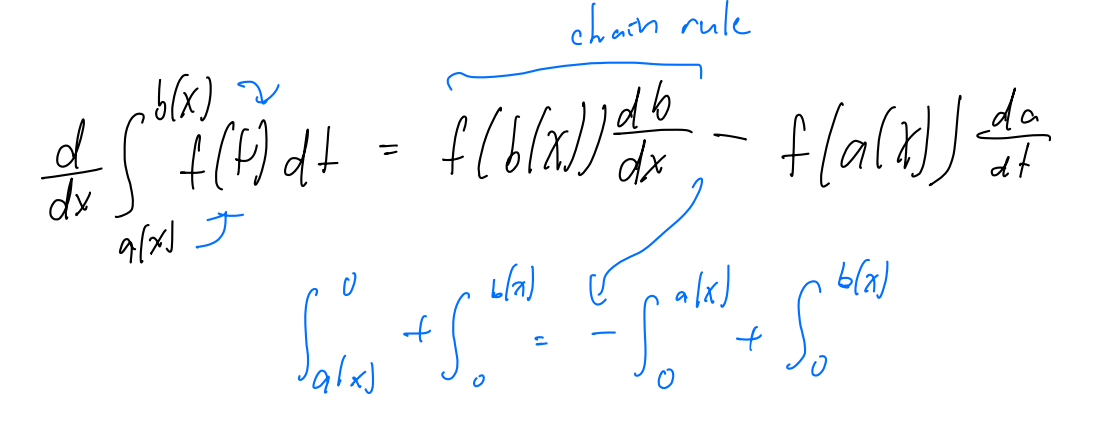 chain rule
d/dx ∫_{a(x)}^{b(x)} f(t) dt = f(b(x)) db/dx - f(a(x)) da/dt
∫_{a(x)}^{0} + ∫_{0}^{b(x)} = - ∫_{0}^{a(x)} + ∫_{0}^{b(x)}